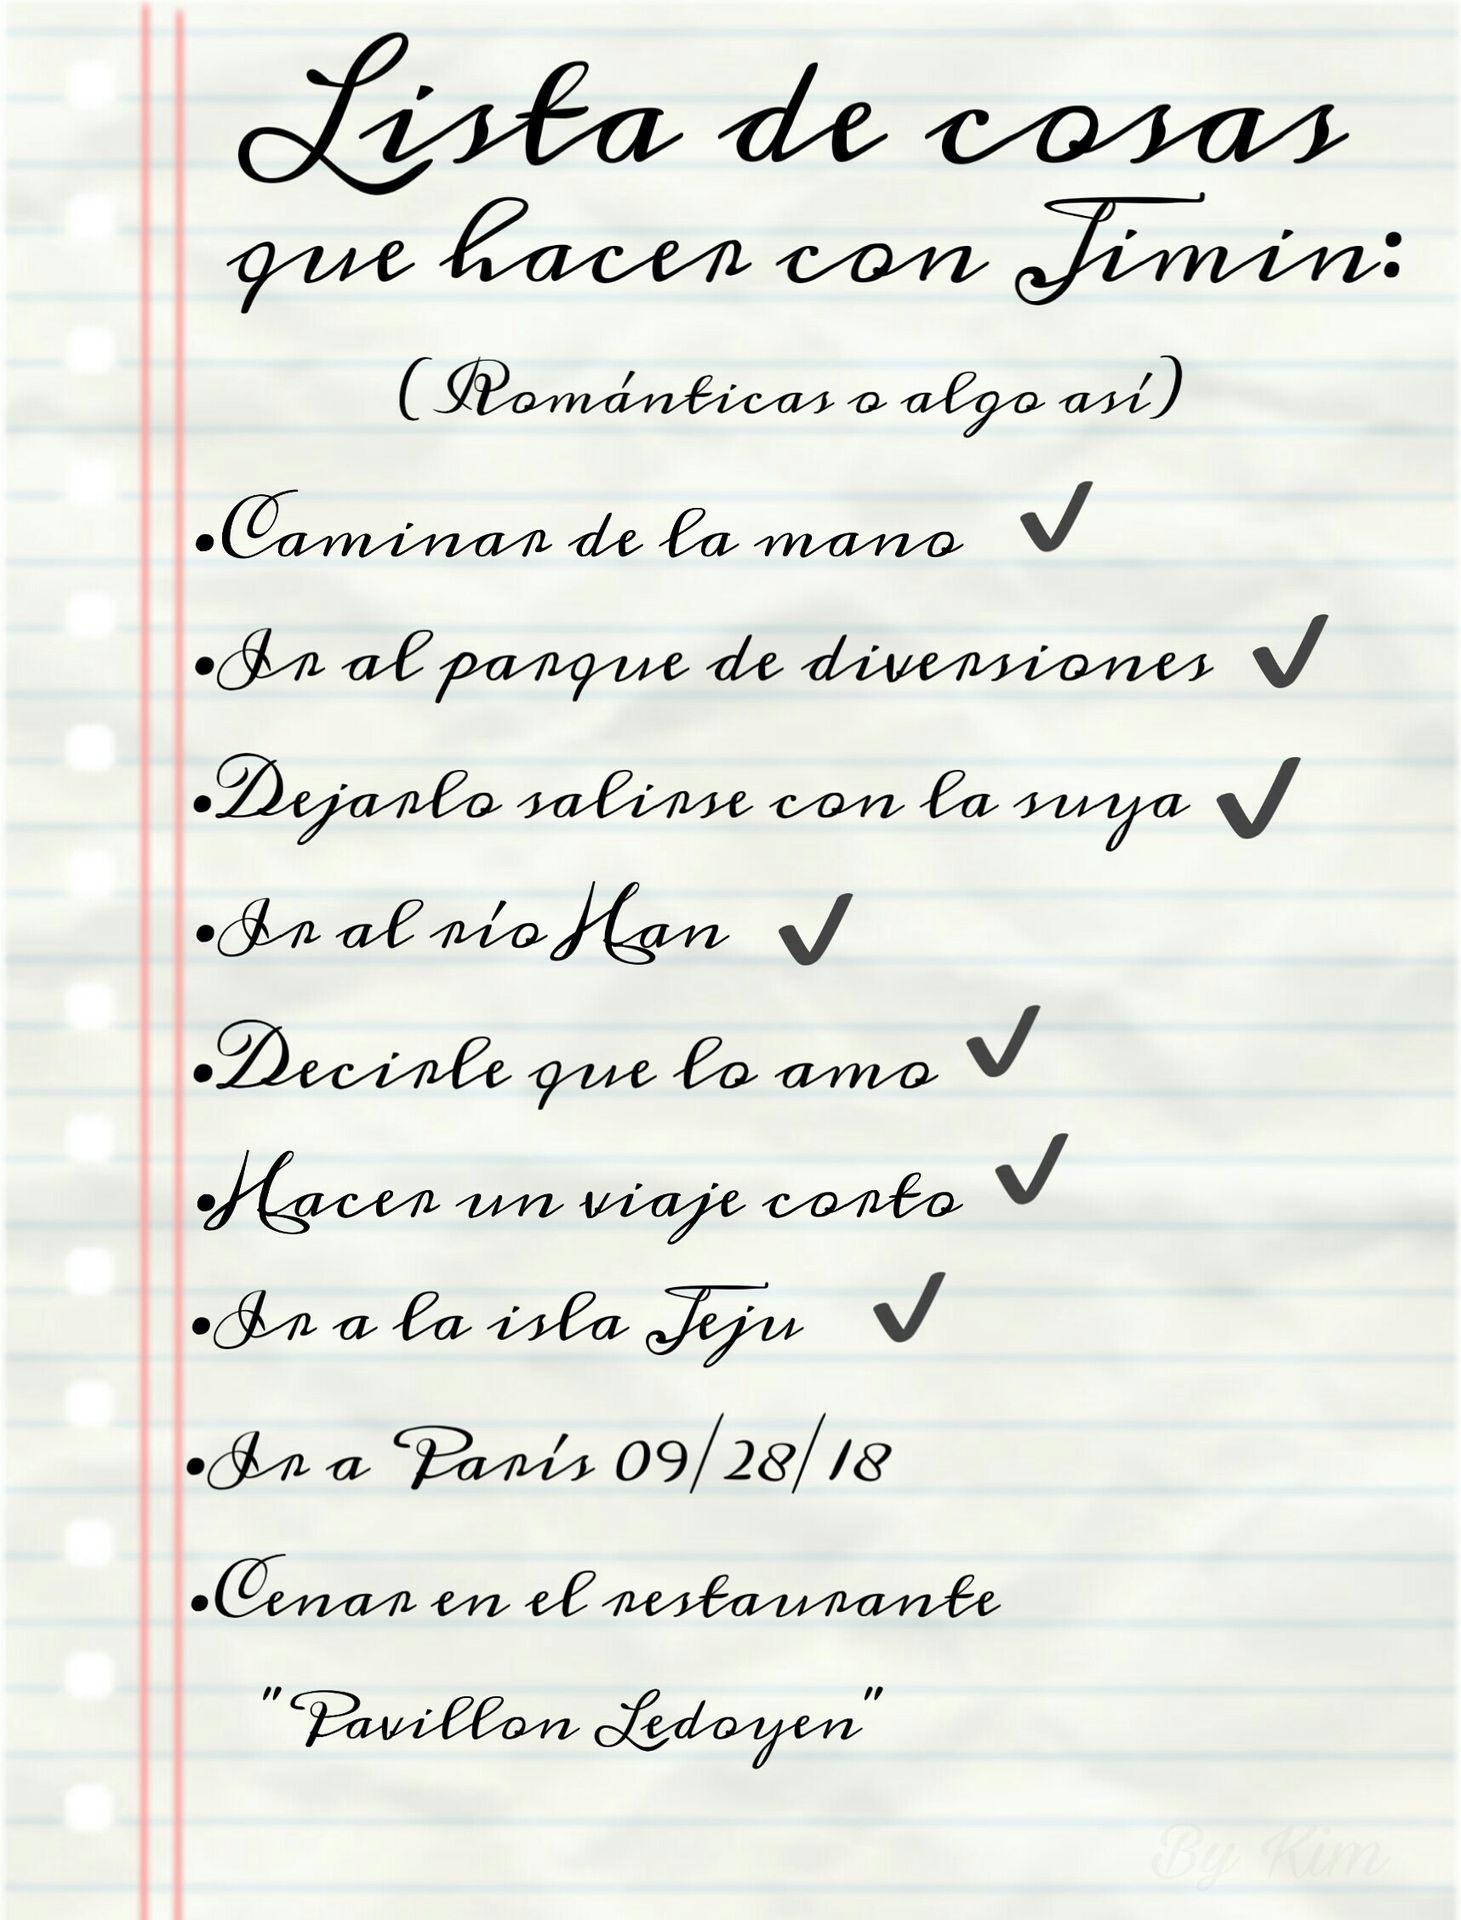 Lista de cosas
que hacer con Jimin:
( Románticas o algo así)
•Caminar de la mano ✔
•Ir al parque de diversiones ✔
•Dejarlo salirse con la suya ✔
•Ir al río Han ✔
•Decirle que lo amo ✔
•Hacer un viaje corto ✔
•Ir a la isla Jeju ✔
•Ir a París 09/28/18
•Cenar en el restaurante
"Pavillon Ledoyen"
By Kim